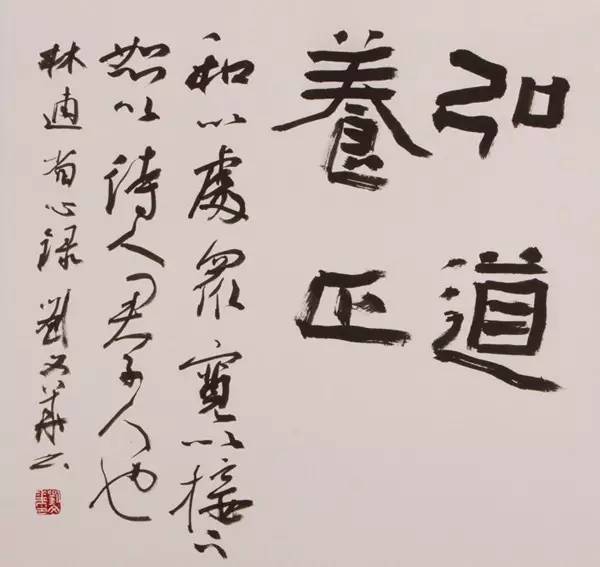 弘道
養正
和以處眾寬以接下
恕以待人君子人也
林逋省心録劉文華书